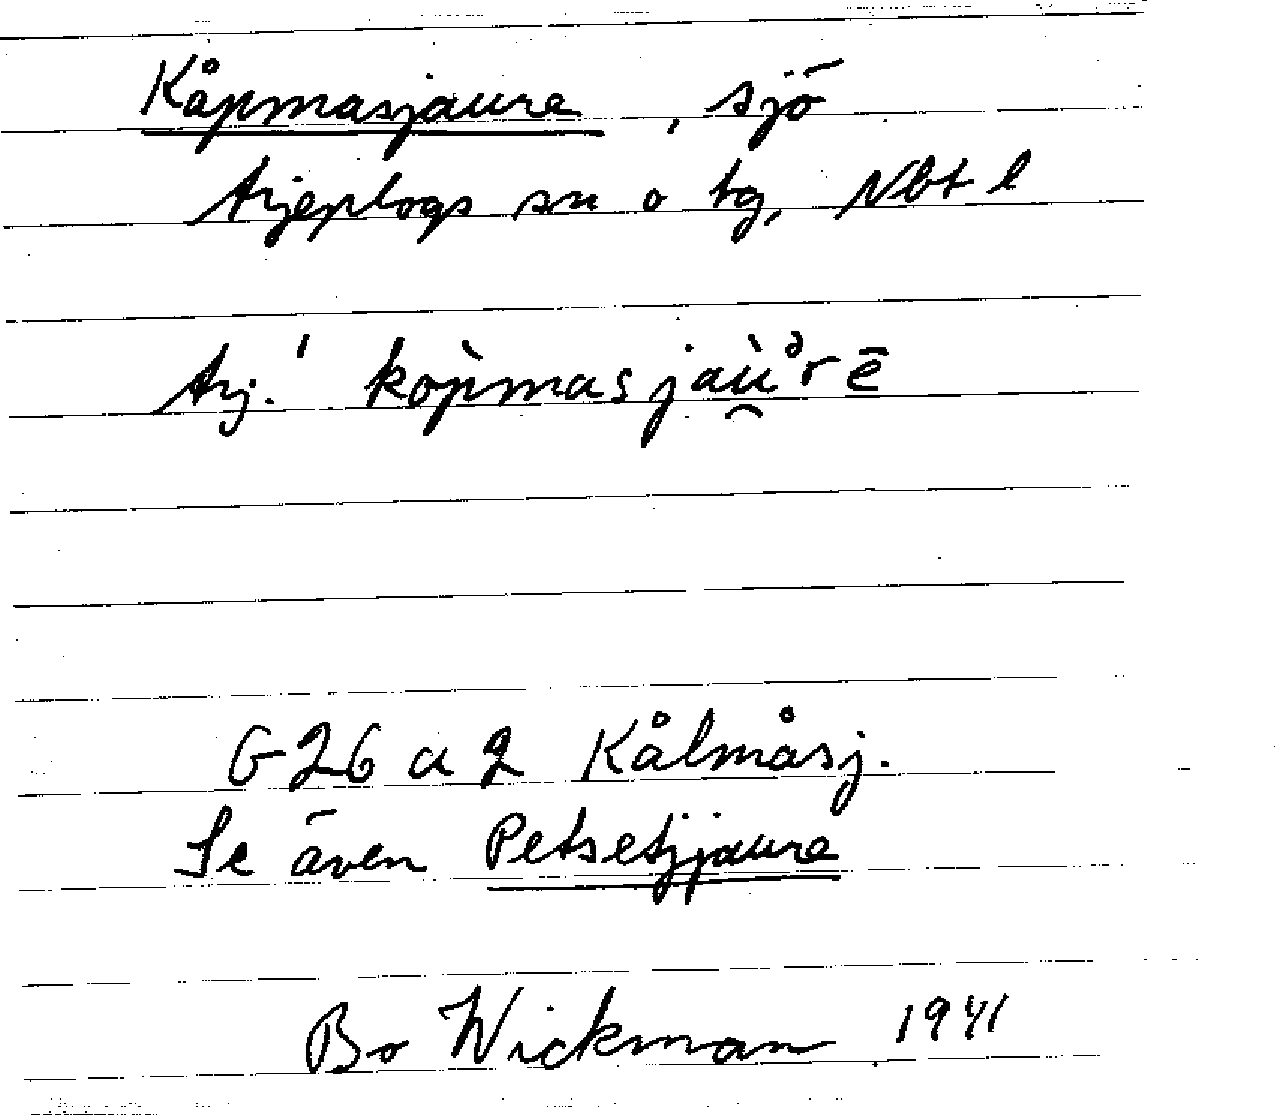 Kåpmasjaure, sjö
Arjeplogs sn o tg, Nbt l
Arj. ˈkop̀masjaù̯ᵊrē
G26 a 2 Kålmåsj.
Se även Petsetjjaure
Bo Wickman 1941